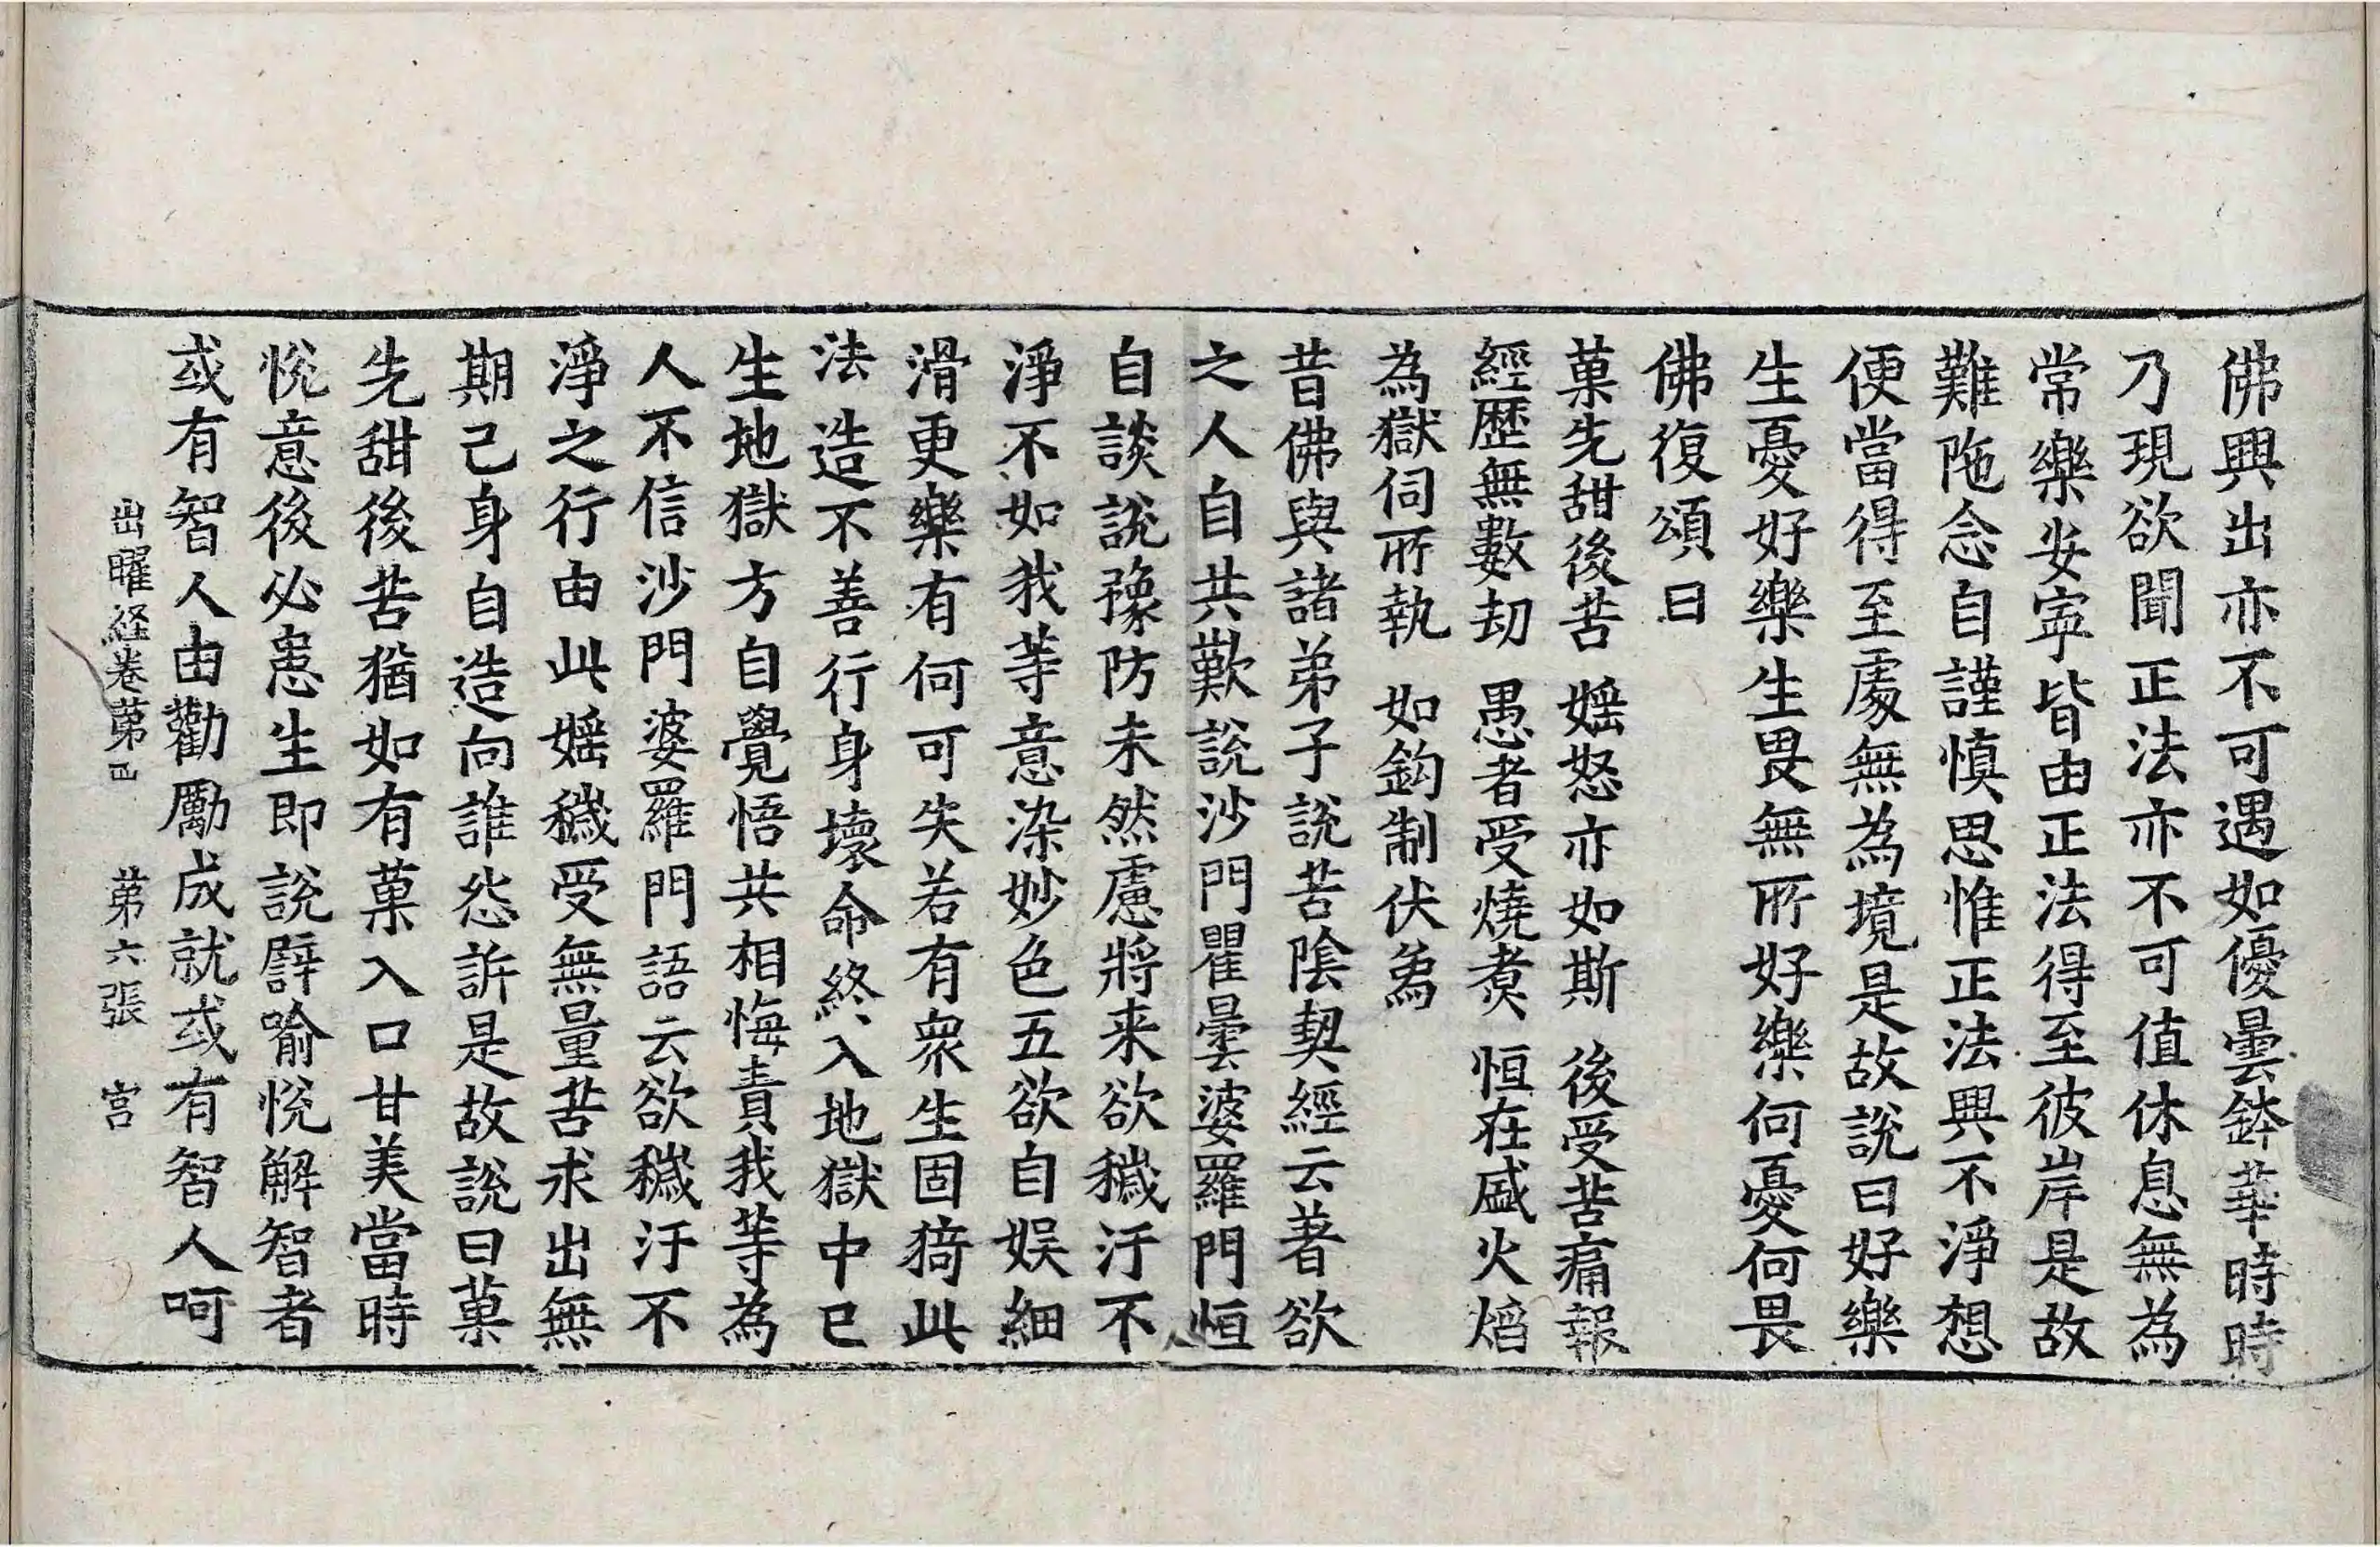 佛興出亦不可遇如優曇鉢華時時
乃現欲聞正法亦不可值休息無為
常樂安寧皆由正法得至彼岸是故
難陁念自謹慎思惟正法興不淨想
便當得至處無為境是故說曰好樂
生憂好樂生畏無所好樂何憂何畏
佛復頌曰
菓先甜後苦　婬怒亦如斯　後受苦痛報
經歷無數劫　愚者受燒煑　恒在盛火熖
為獄伺所執　如鈎制伏為
昔佛與諸弟子說苦陰契經云著欲
之人自共歎說沙門瞿曇婆羅門恒
自談說豫防未然慮將来欲穢汙不
淨不如我等意染妙色五欲自娱細
滑更樂有何可失若有衆生固猗此
法造不善行身壞命終入地獄中已
生地獄方自覺悟共相悔責我等為
人不信沙門婆羅門語云欲穢汙不
淨之行由此婬穢受無量苦求出無
期己身自造向誰怨訴是故說曰菓
先甜後苦猶如有菓入口甘美當時
悅意後必患生即說譬喻悅解智者
或有智人由勸勵成就或有智人呵
出曜経卷第四　第六張　宫